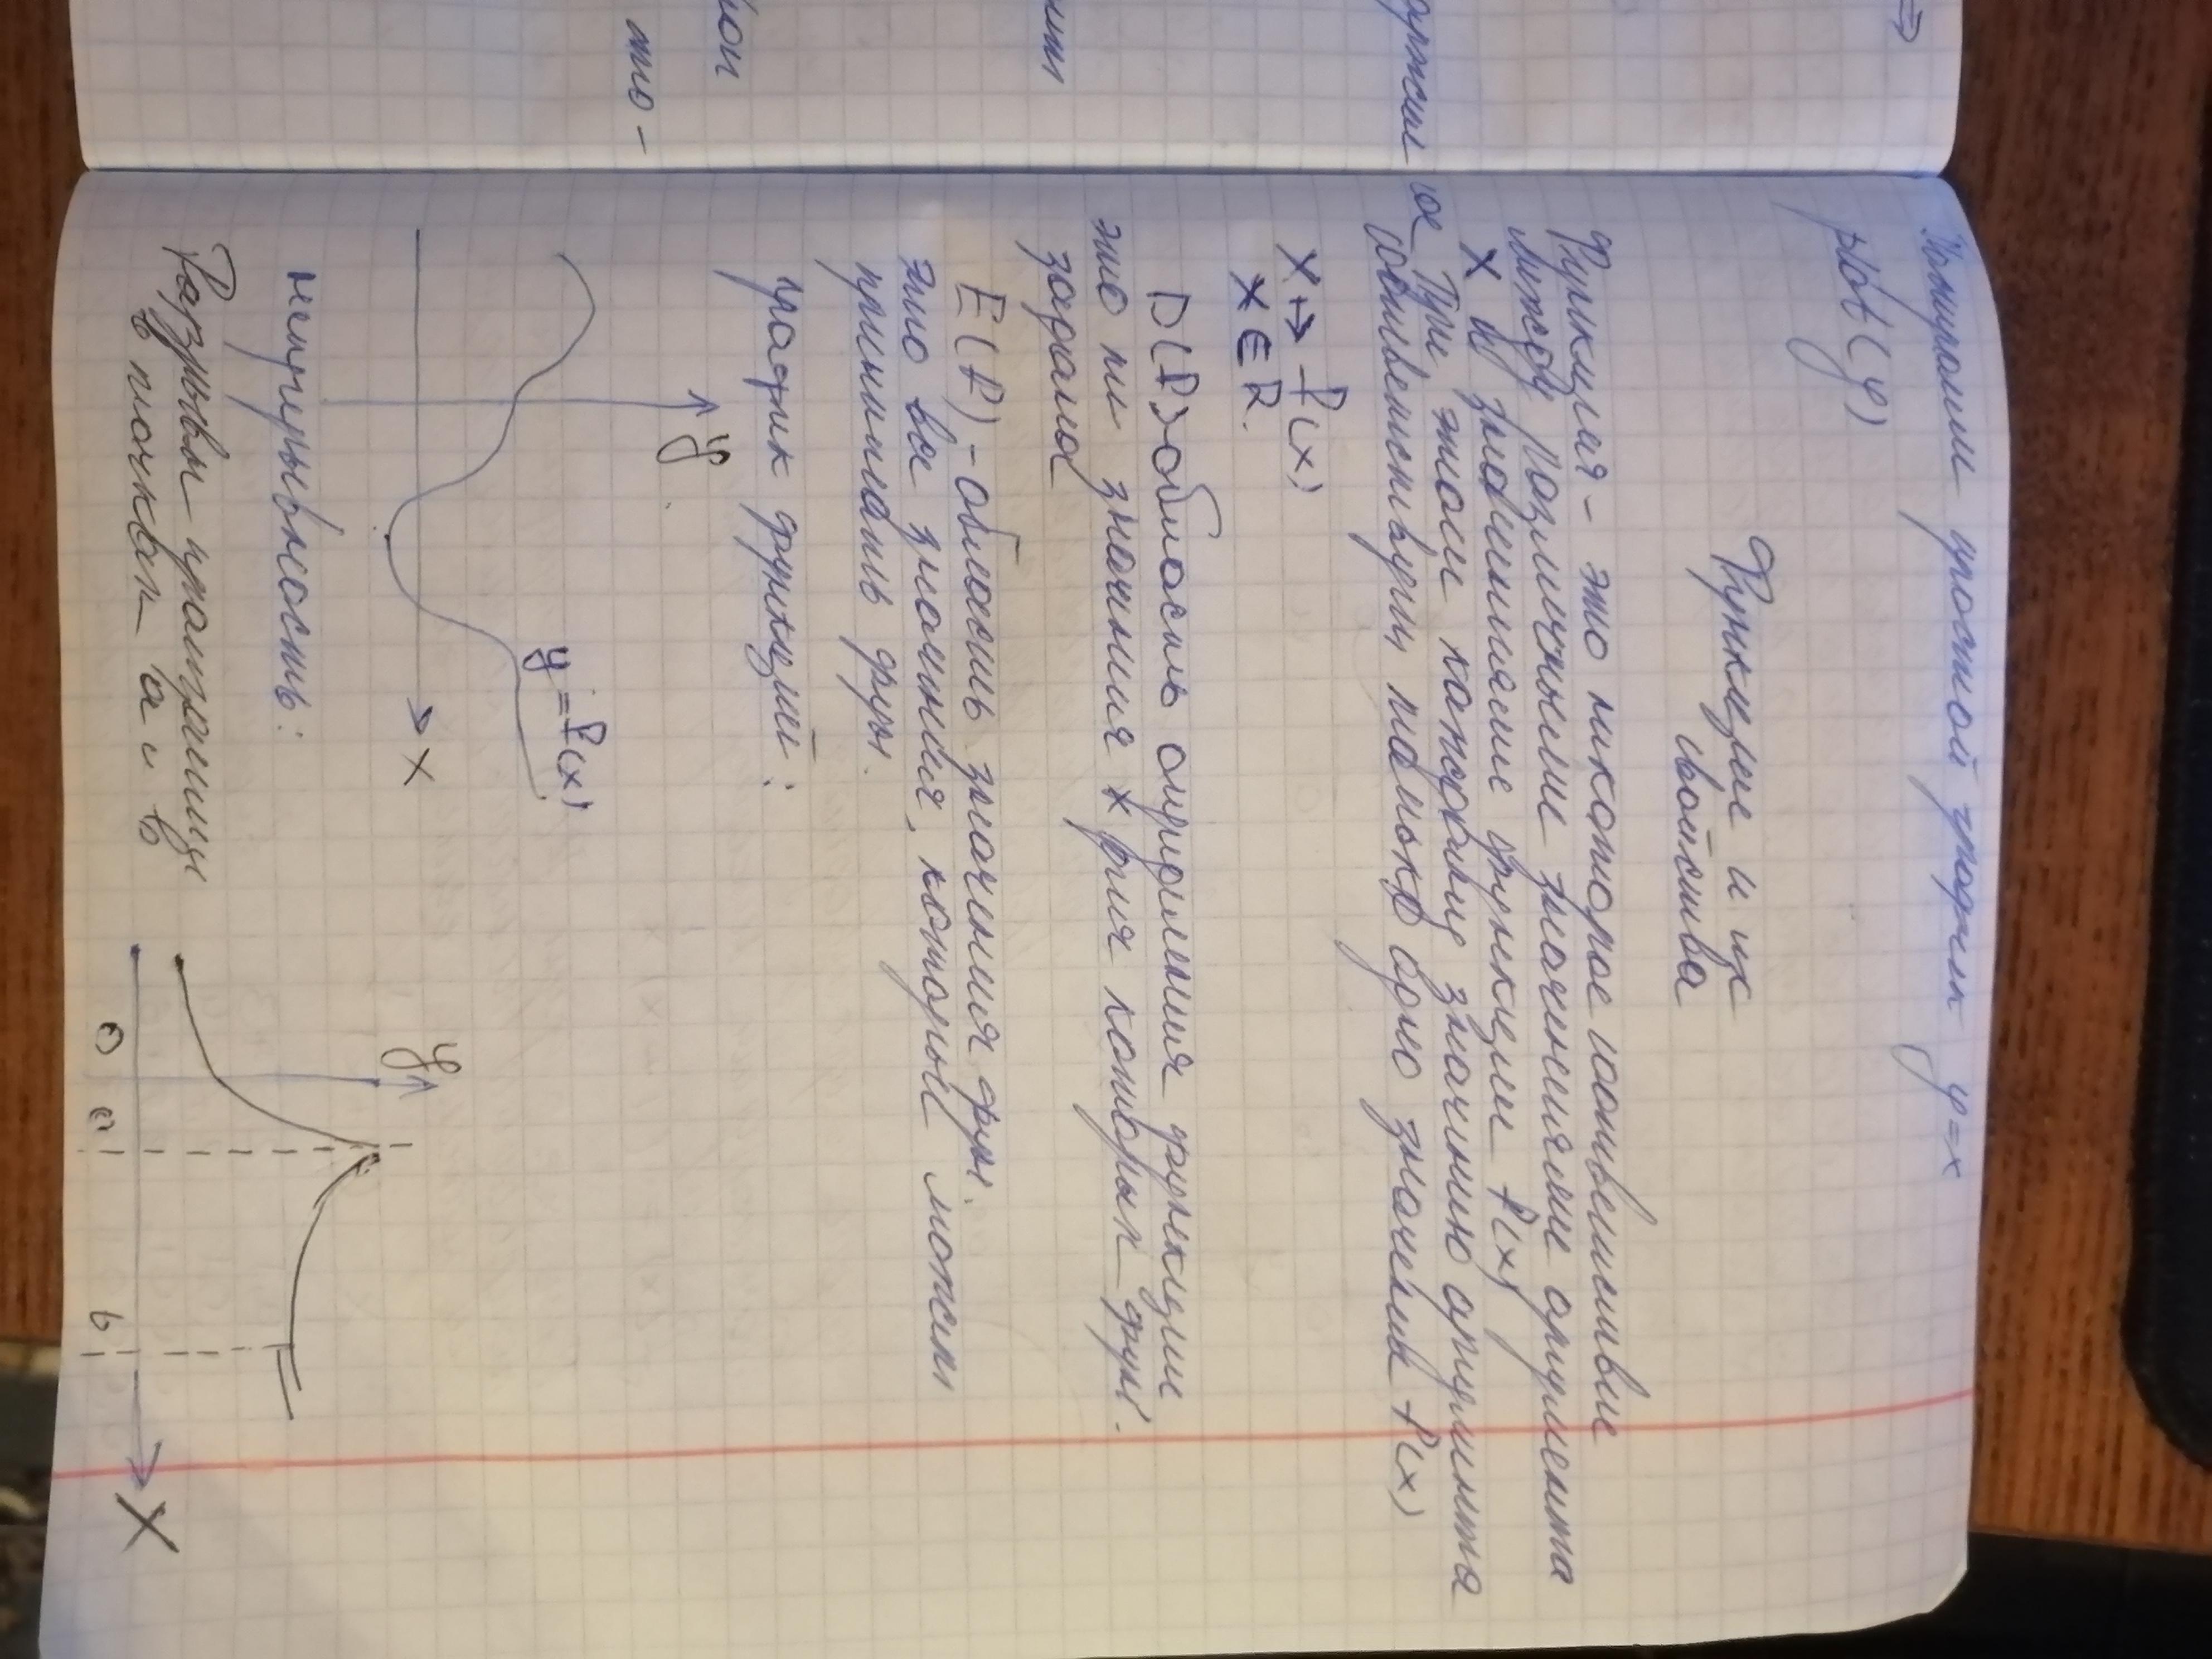 Нарисовали простой график y=x
plot(y)
Функции и их
свойства
Функция - это некоторое соответствие
между различными значениями аргумента
x и значениями функции f(x)
При этом каждому значению аргумента
соответствует только одно значение f(x)
x ↦ f(x)
x ∈ R.
D(f) область определения функции
это те значения x для которых функ.
задана
E(f) - область значения функ.
это все значения, которые может
принимать функ.
график функций:
y
y=f(x)
x
непрерывность:
Разрывы границы
в точках a и b
y
0
a
b
X
ое
то -
ной
⇒